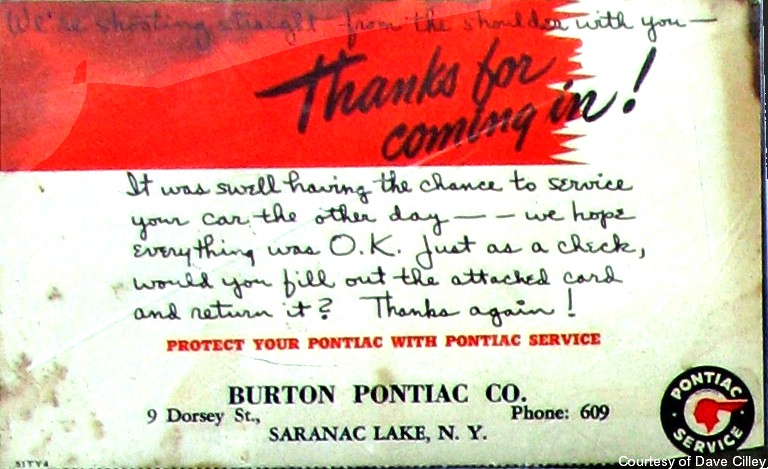 We're shooting straight from the shoulder with you—
Thanks for
coming in!
It was swell having the chance to service
your car the other day — — we hope
everything was O.K. Just as a check,
would you fill out the attached card
and return it? Thanks again!
PROTECT YOUR PONTIAC WITH PONTIAC SERVICE
BURTON PONTIAC CO.
9 Dorsey St., Phone: 609
SARANAC LAKE, N. Y.
PONTIAC
SERVICE
Courtesy of Dave Cilley